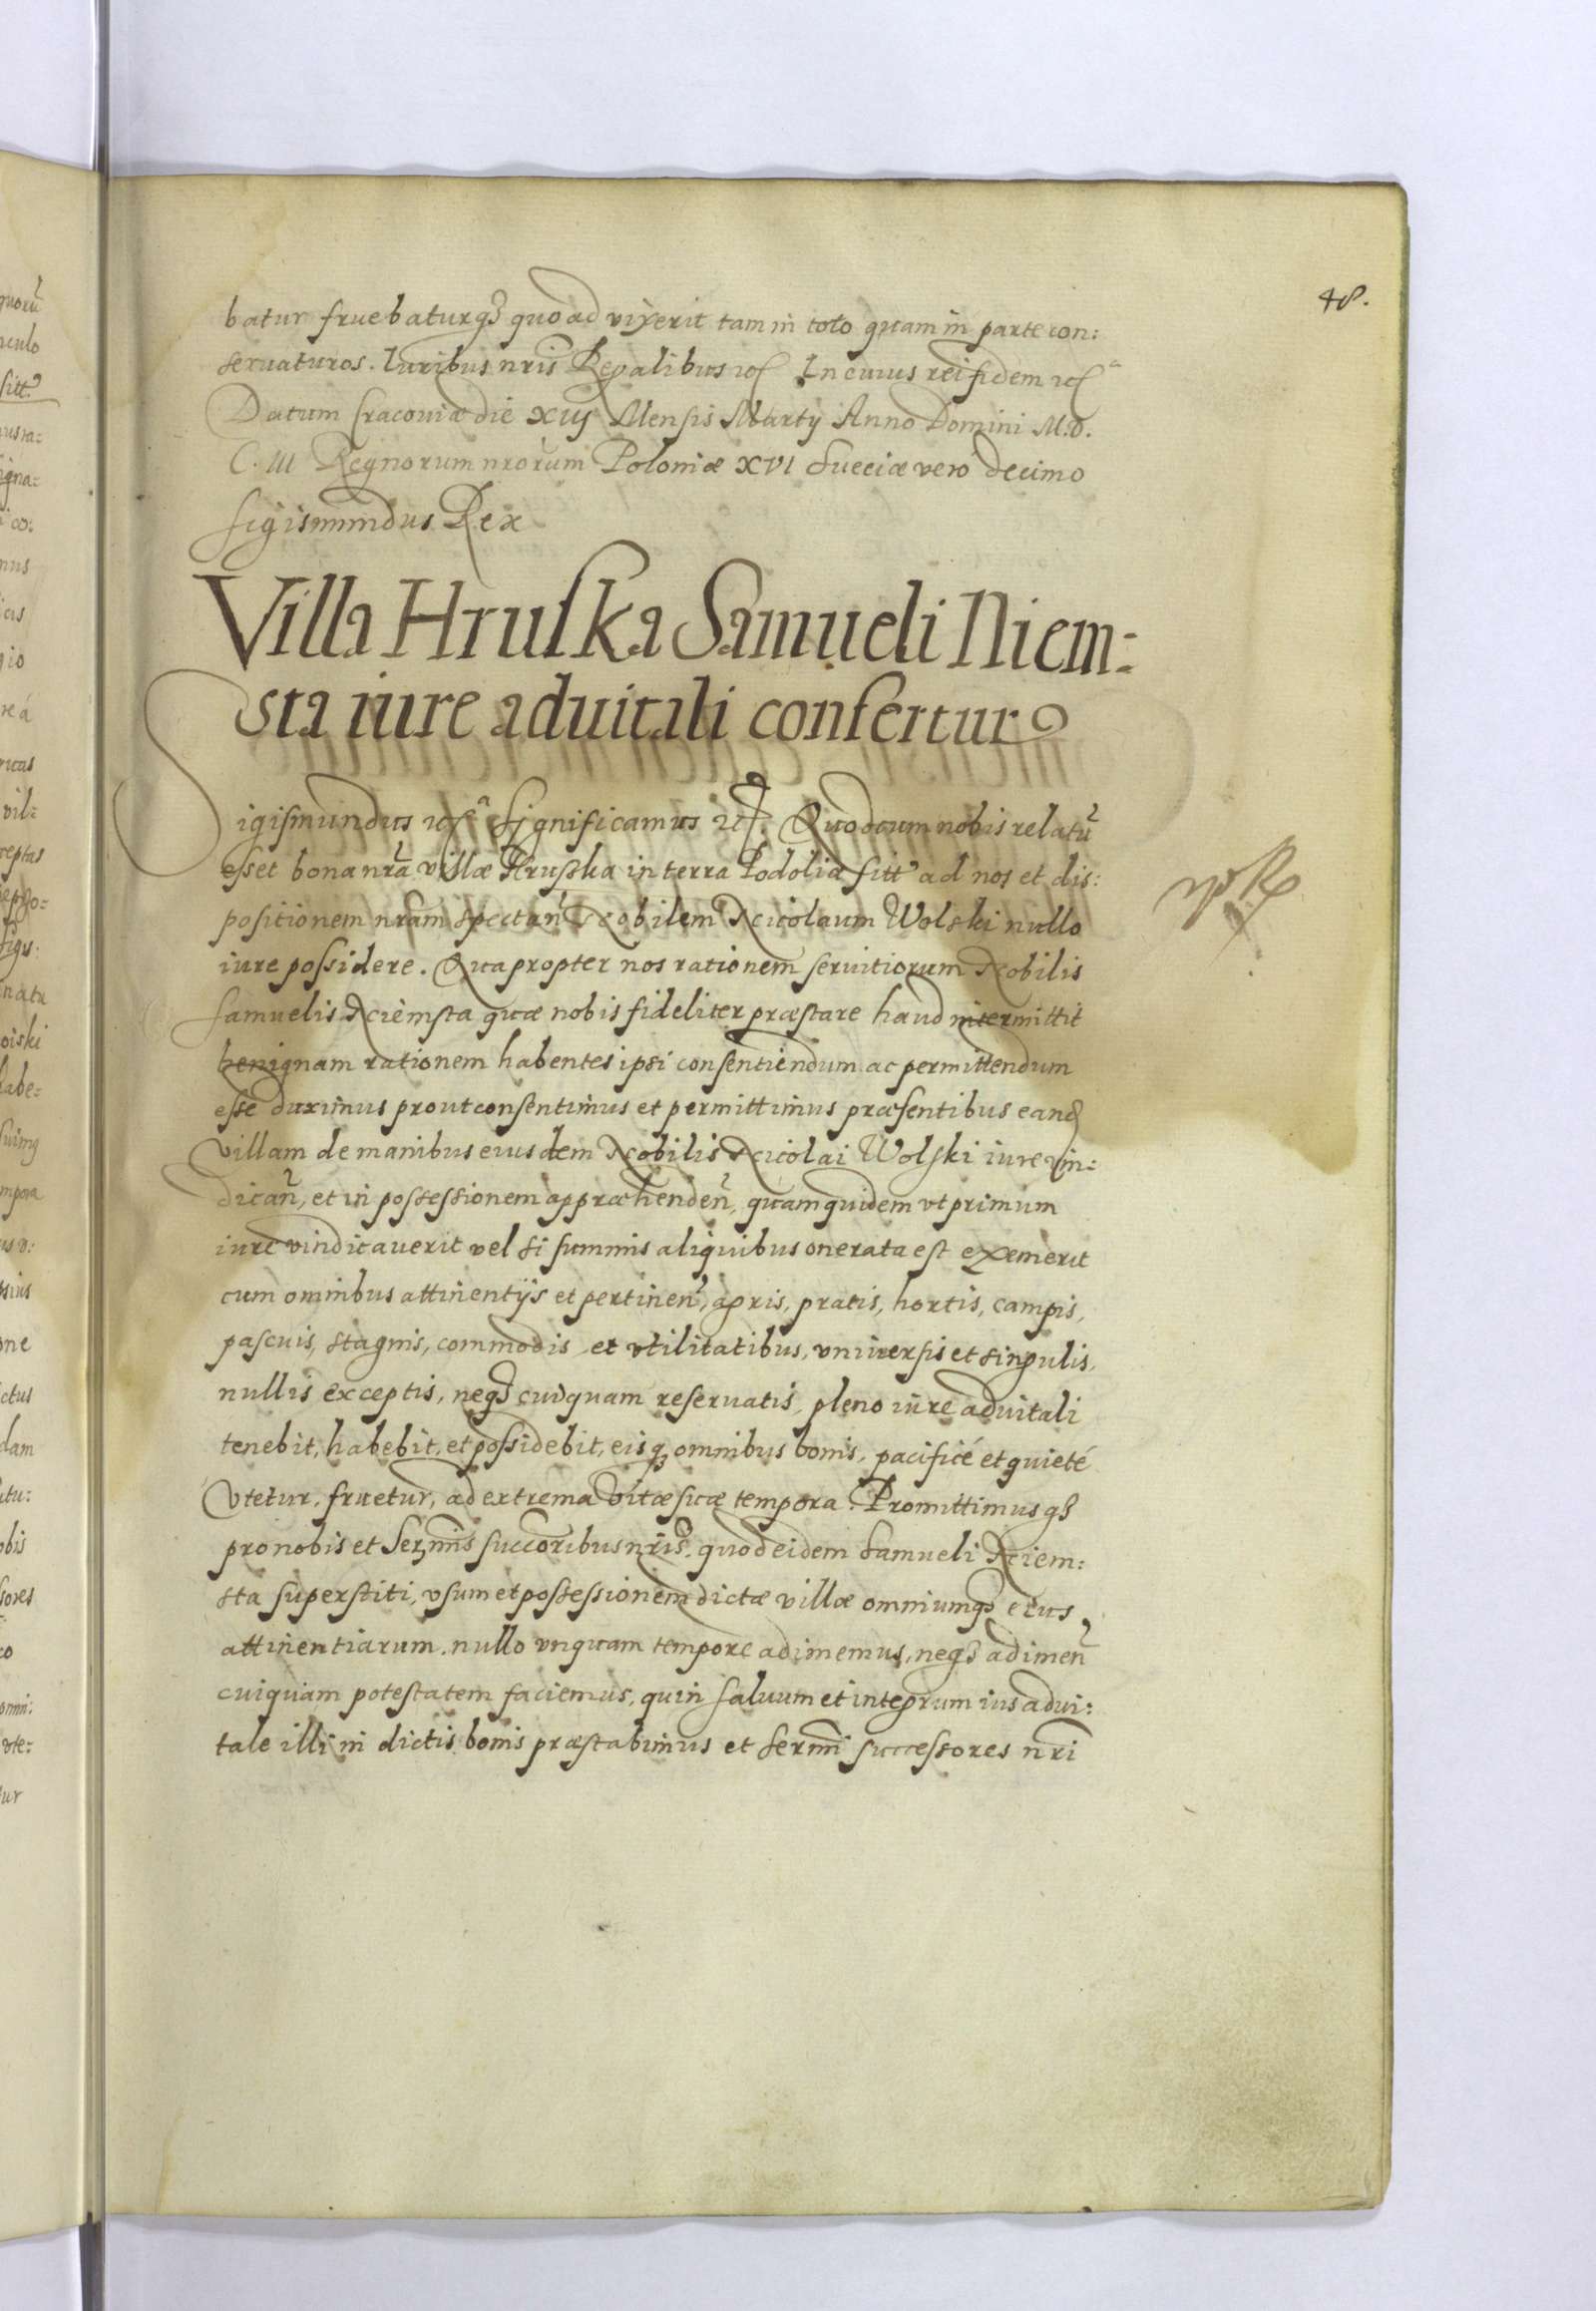 48.
batur fruebaturqз quoad vixerit tam in toto quam in parte con:
seruaturos. Iuribus nris Regalibus etc In cuius rei fidem etc
Datum Cracoviæ die XIIJ Mensis Martij Anno Domini M.D.
C. III Regnorum nrorum Poloniæ XVI Sueciæ vero decimo
Sigismundus Rex
Villa Hruska Samueli Niem:
sta iure aduitali confertur
Sigismundus etc Significamus etc. Quod cum nobis relatũ
esset bona nrã villæ Hruska in terra Podoliæ sitt ad nos et dis:
positionem nram spectañ Nobilem Nicolaum Wolski nullo
iure possidere. Quapropter nos rationem seruitiorum Nobilis
Samuelis Niemsta quæ nobis fideliter præstare haud intermittit
benignam rationem habentes ipsi consentiendum ac permittendum
esse duximus prout consentimus et permittimus præsentibus eand
villam de manibus eiusdem Nobilis Nicolai Wolski iure vin:
dicañ, et in possessionem appræhendeñ, quam quidem vt primum
iure vindicauerit vel si summis aliquibus onerata est exemerit
cum omnibus attinentijs et pertineñ, agris, pratis, hortis, campis,
pascuis, stagnis, commodis et vtilitatibus, vniuersis et singulis,
nullis exceptis, neqз cuiquam reseruatis, pleno iure aduitali
tenebit, habebit, et possidebit, eisqз omnibus bonis, pacificé et quieté
Vtetur, fruetur, ad extrema vitæ suæ tempora. Promittimusqз
pro nobis et Sermis succoribus nris. quod eidem Samueli Niem:
sta superstiti, vsum et possessionem dictæ villæ omniumqз eius
attinentiarum. nullo vnquam tempore adimemus, neqз adimeñ
cuiquam potestatem faciemus, quin saluum et integrum ius adui:
tale illi in dictis bonis præstabimus et sermi successores nri